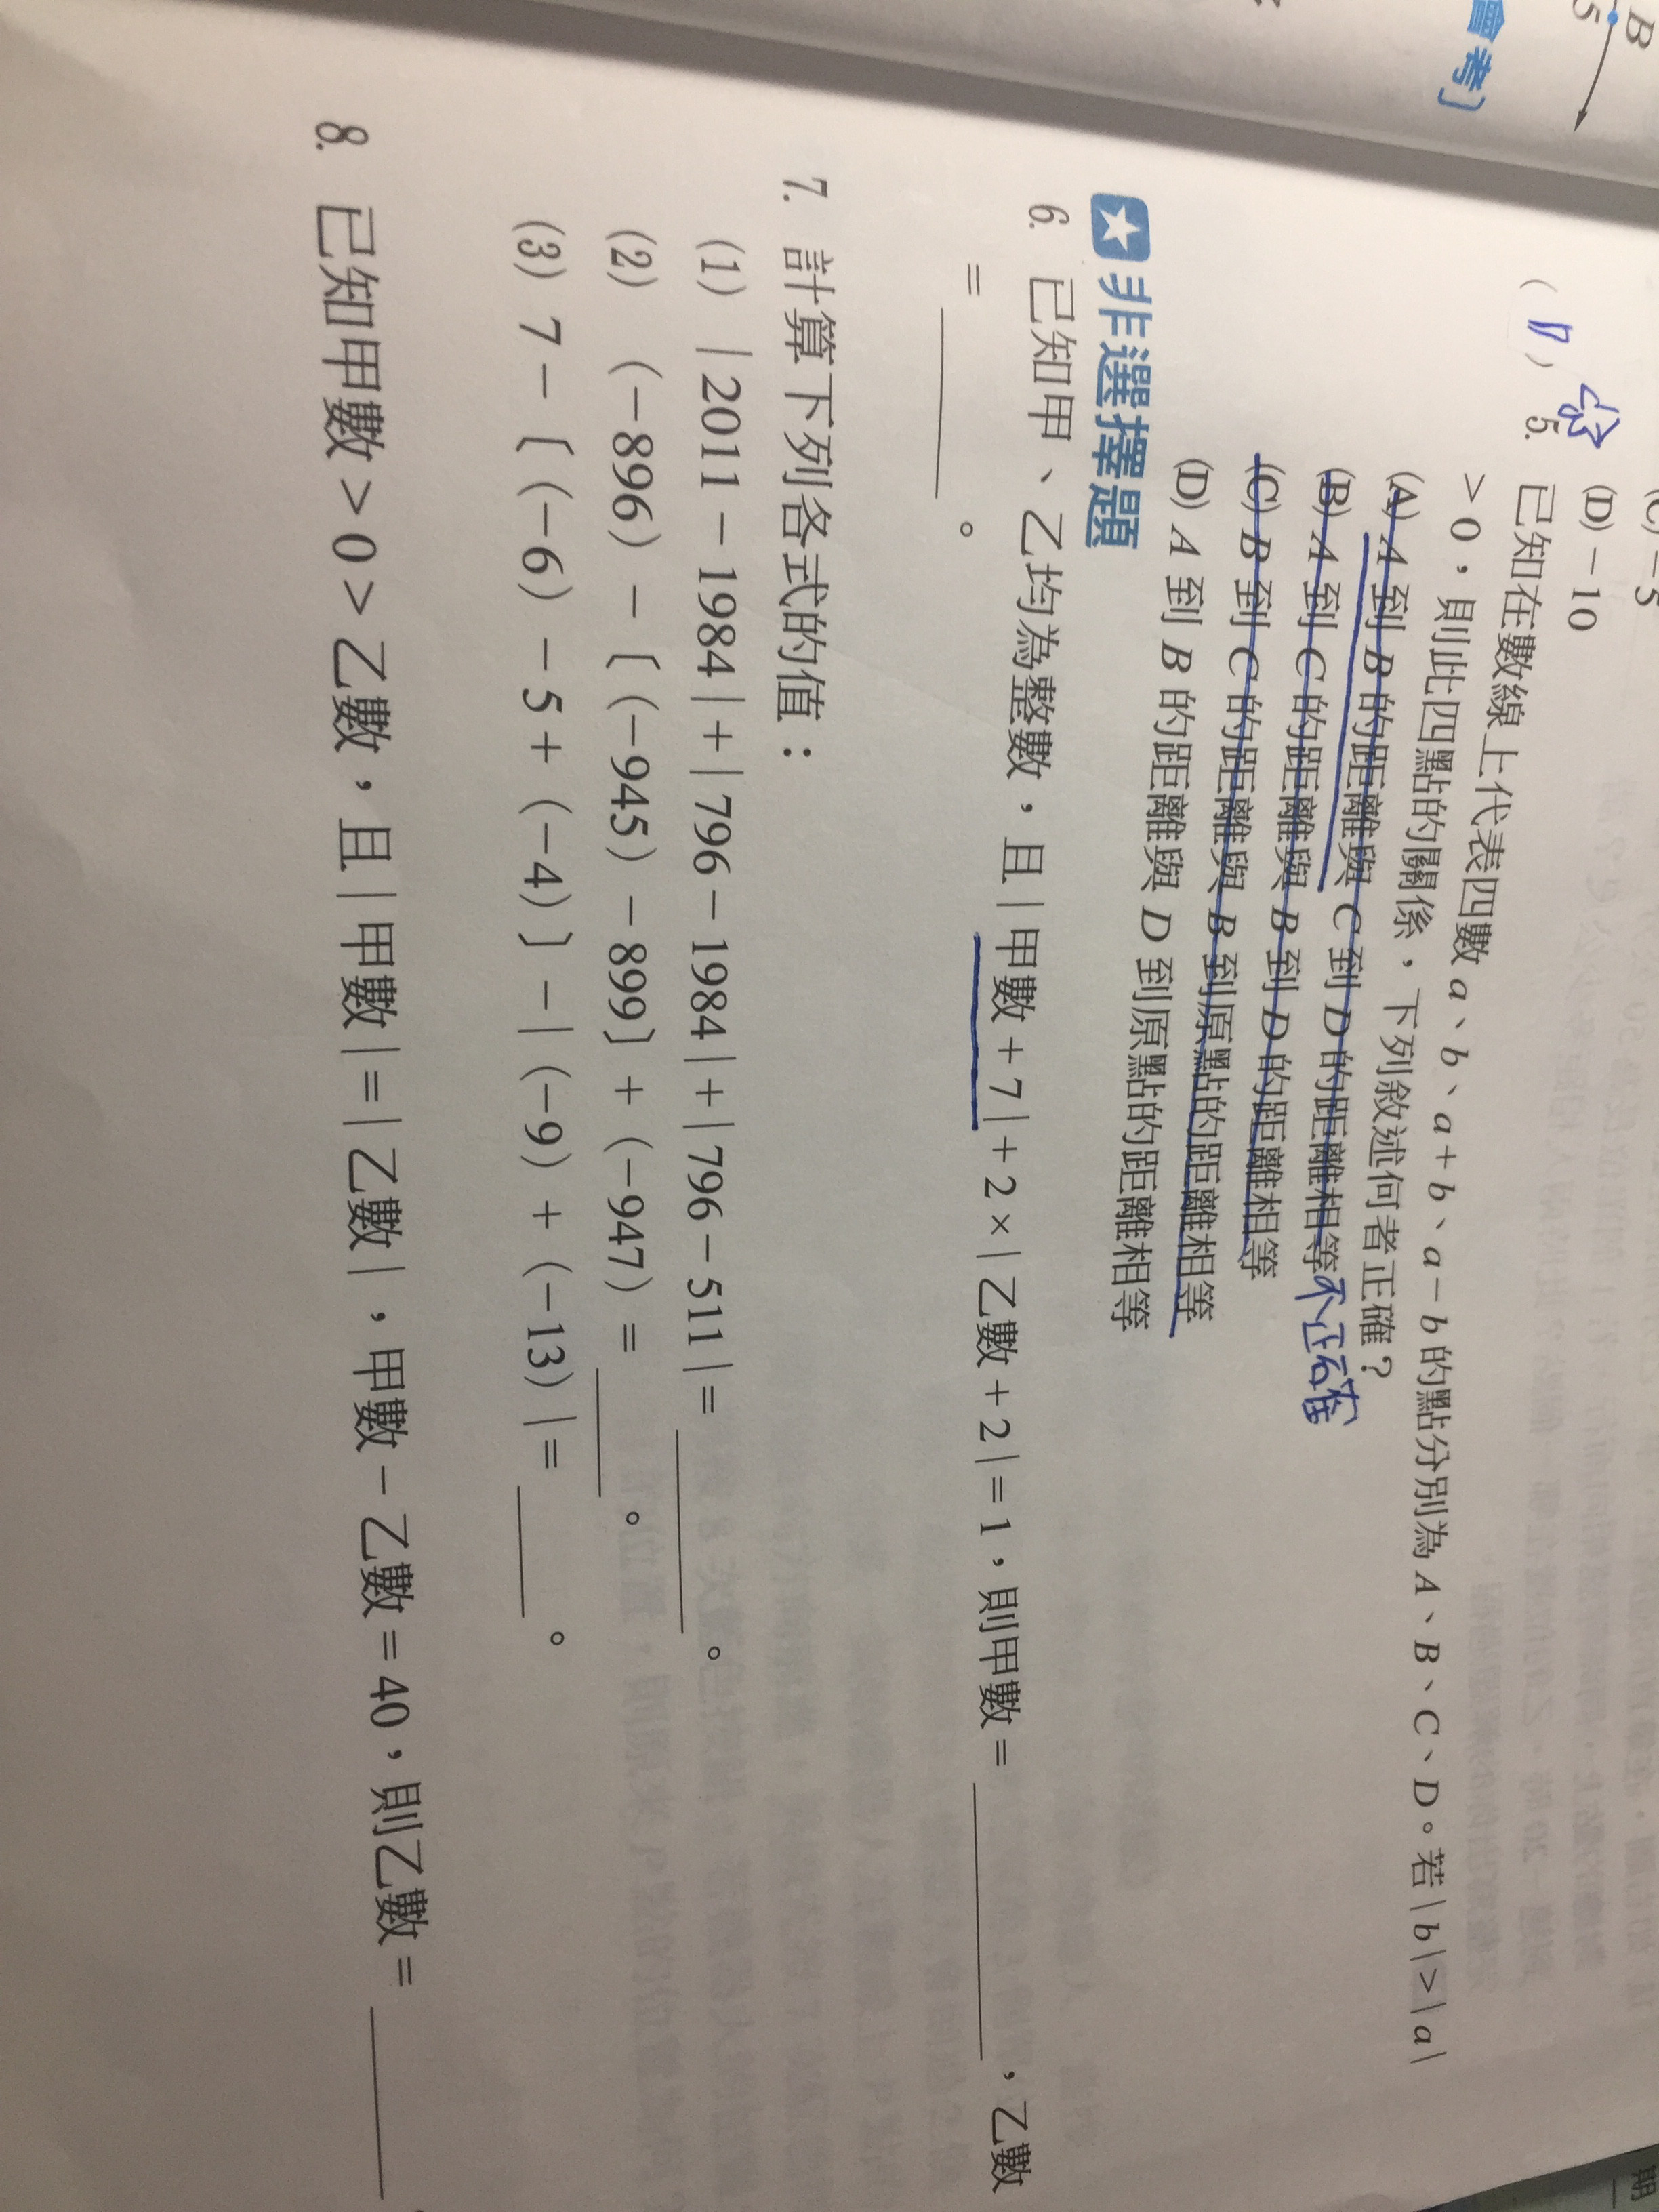 B
5
會考〕
(D) －10
( D ) 5. 已知在數線上代表四數 a、b、a＋b、a－b 的點分別為 A、B、C、D。若｜b｜＞｜a｜
＞0，則此四點的關係，下列敘述何者正確？
(A) A 到 B 的距離與 C 到 D 的距離相等 不正確
(B) A 到 C 的距離與 B 到 D 的距離相等
(C) B 到 C 的距離與 B 到原點的距離相等
(D) A 到 B 的距離與 D 到原點的距離相等
非選擇題
6. 已知甲、乙均為整數，且｜甲數＋7｜＋2×｜乙數＋2｜＝1，則甲數＝＿＿＿＿，乙數
＝＿＿＿＿。
7. 計算下列各式的值：
(1) ｜2011－1984｜＋｜796－1984｜＋｜796－511｜＝＿＿＿＿。
(2) (－896)－〔(－945)－899〕＋(－947)＝＿＿＿＿。
(3) 7－〔(－6)－5＋(－4)〕－｜(－9)＋(－13)｜＝＿＿＿＿。
8. 已知甲數＞0＞乙數，且｜甲數｜＝｜乙數｜，甲數－乙數＝40，則乙數＝＿＿＿＿
期